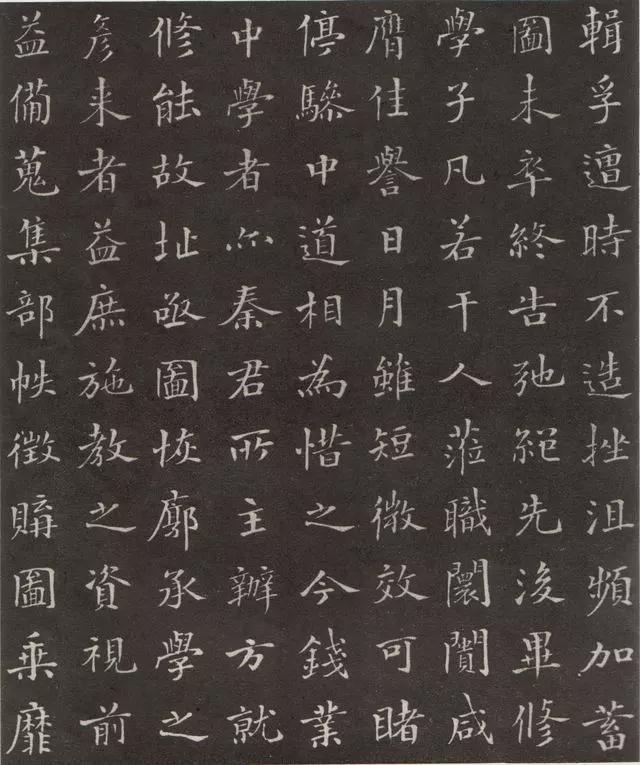 輯孚遭時不造挫沮頻加蓄
圖未卒終告弛絕先後畢修
學子凡若干人蒞職闤闠咸
膺佳譽日月雖短微效可睹
停驂中道相為惜之今錢業
中學者亦秦君所主辦方就
修能故址亟圖恢廓承學之
彥来者益庶施教之資視前
益備蒐集部帙徵購圖乗靡